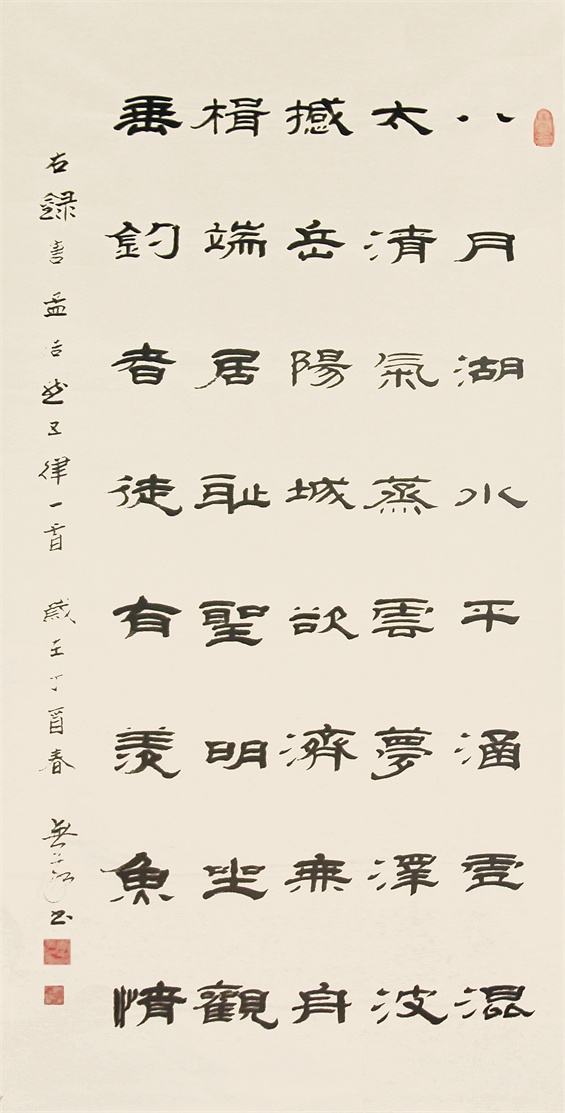 八月湖水平涵虛混
太清氣蒸雲夢澤波
撼岳陽城欲濟無舟
楫端居耻聖明坐觀
垂釣者徒有羨魚情
右録書孟浩然五律一首 歲在丁酉春 書